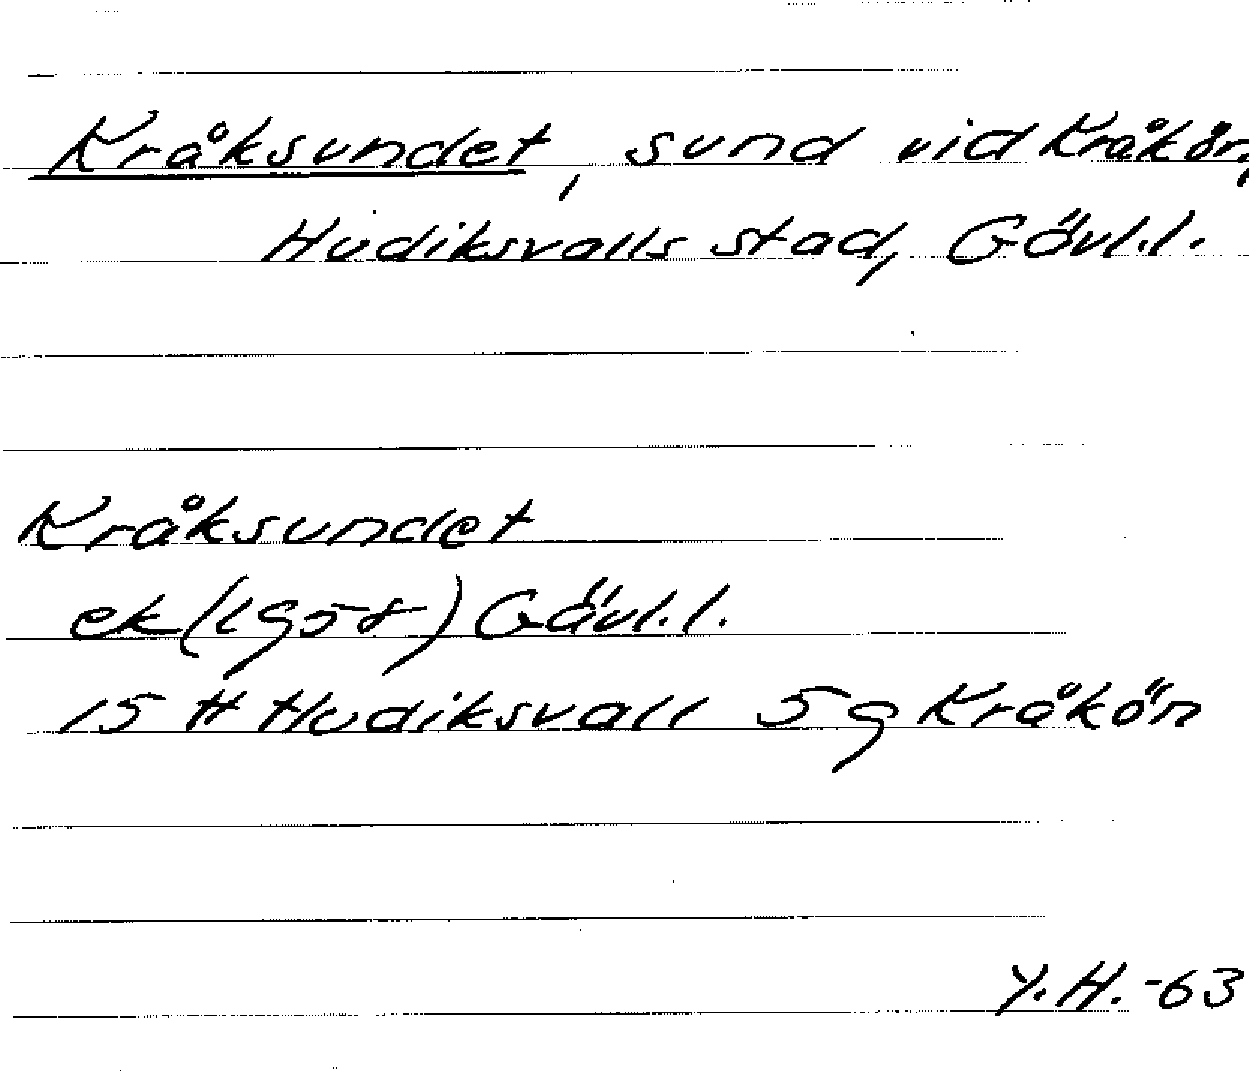 Kråksundet, sund vid Kråkön,
Hudiksvalls stad, Gävl.l.
Kråksundet
ek (1958) Gävl.l.
15 H Hudiksvall 5 g Kråkön
Y.H. -63